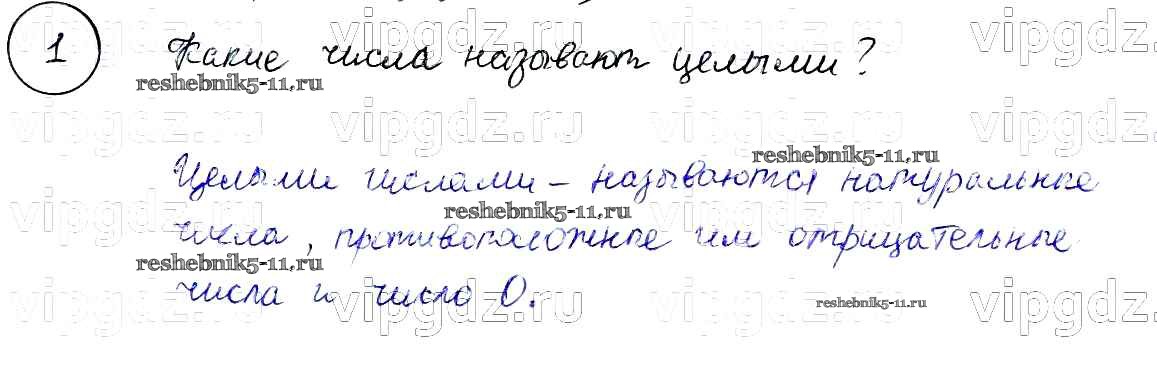 vipgdz.ru vipgdz.ru vipgdz.ru vipgdz.ru
1 Какие числа называют целыми?
reshebnik5-11.ru
vipgdz.ru vipgdz.ru vipgdz.ru vipgdz.ru
reshebnik5-11.ru
Целыми числами – называются натуральные
vipgdz.ru vipgdz.ru vipgdz.ru vipgdz.ru
reshebnik5-11.ru
числа, противоположные им отрицательные
reshebnik5-11.ru
числа и число 0.
vipgdz.ru vipgdz.ru vipgdz.ru vipgdz.ru
reshebnik5-11.ru